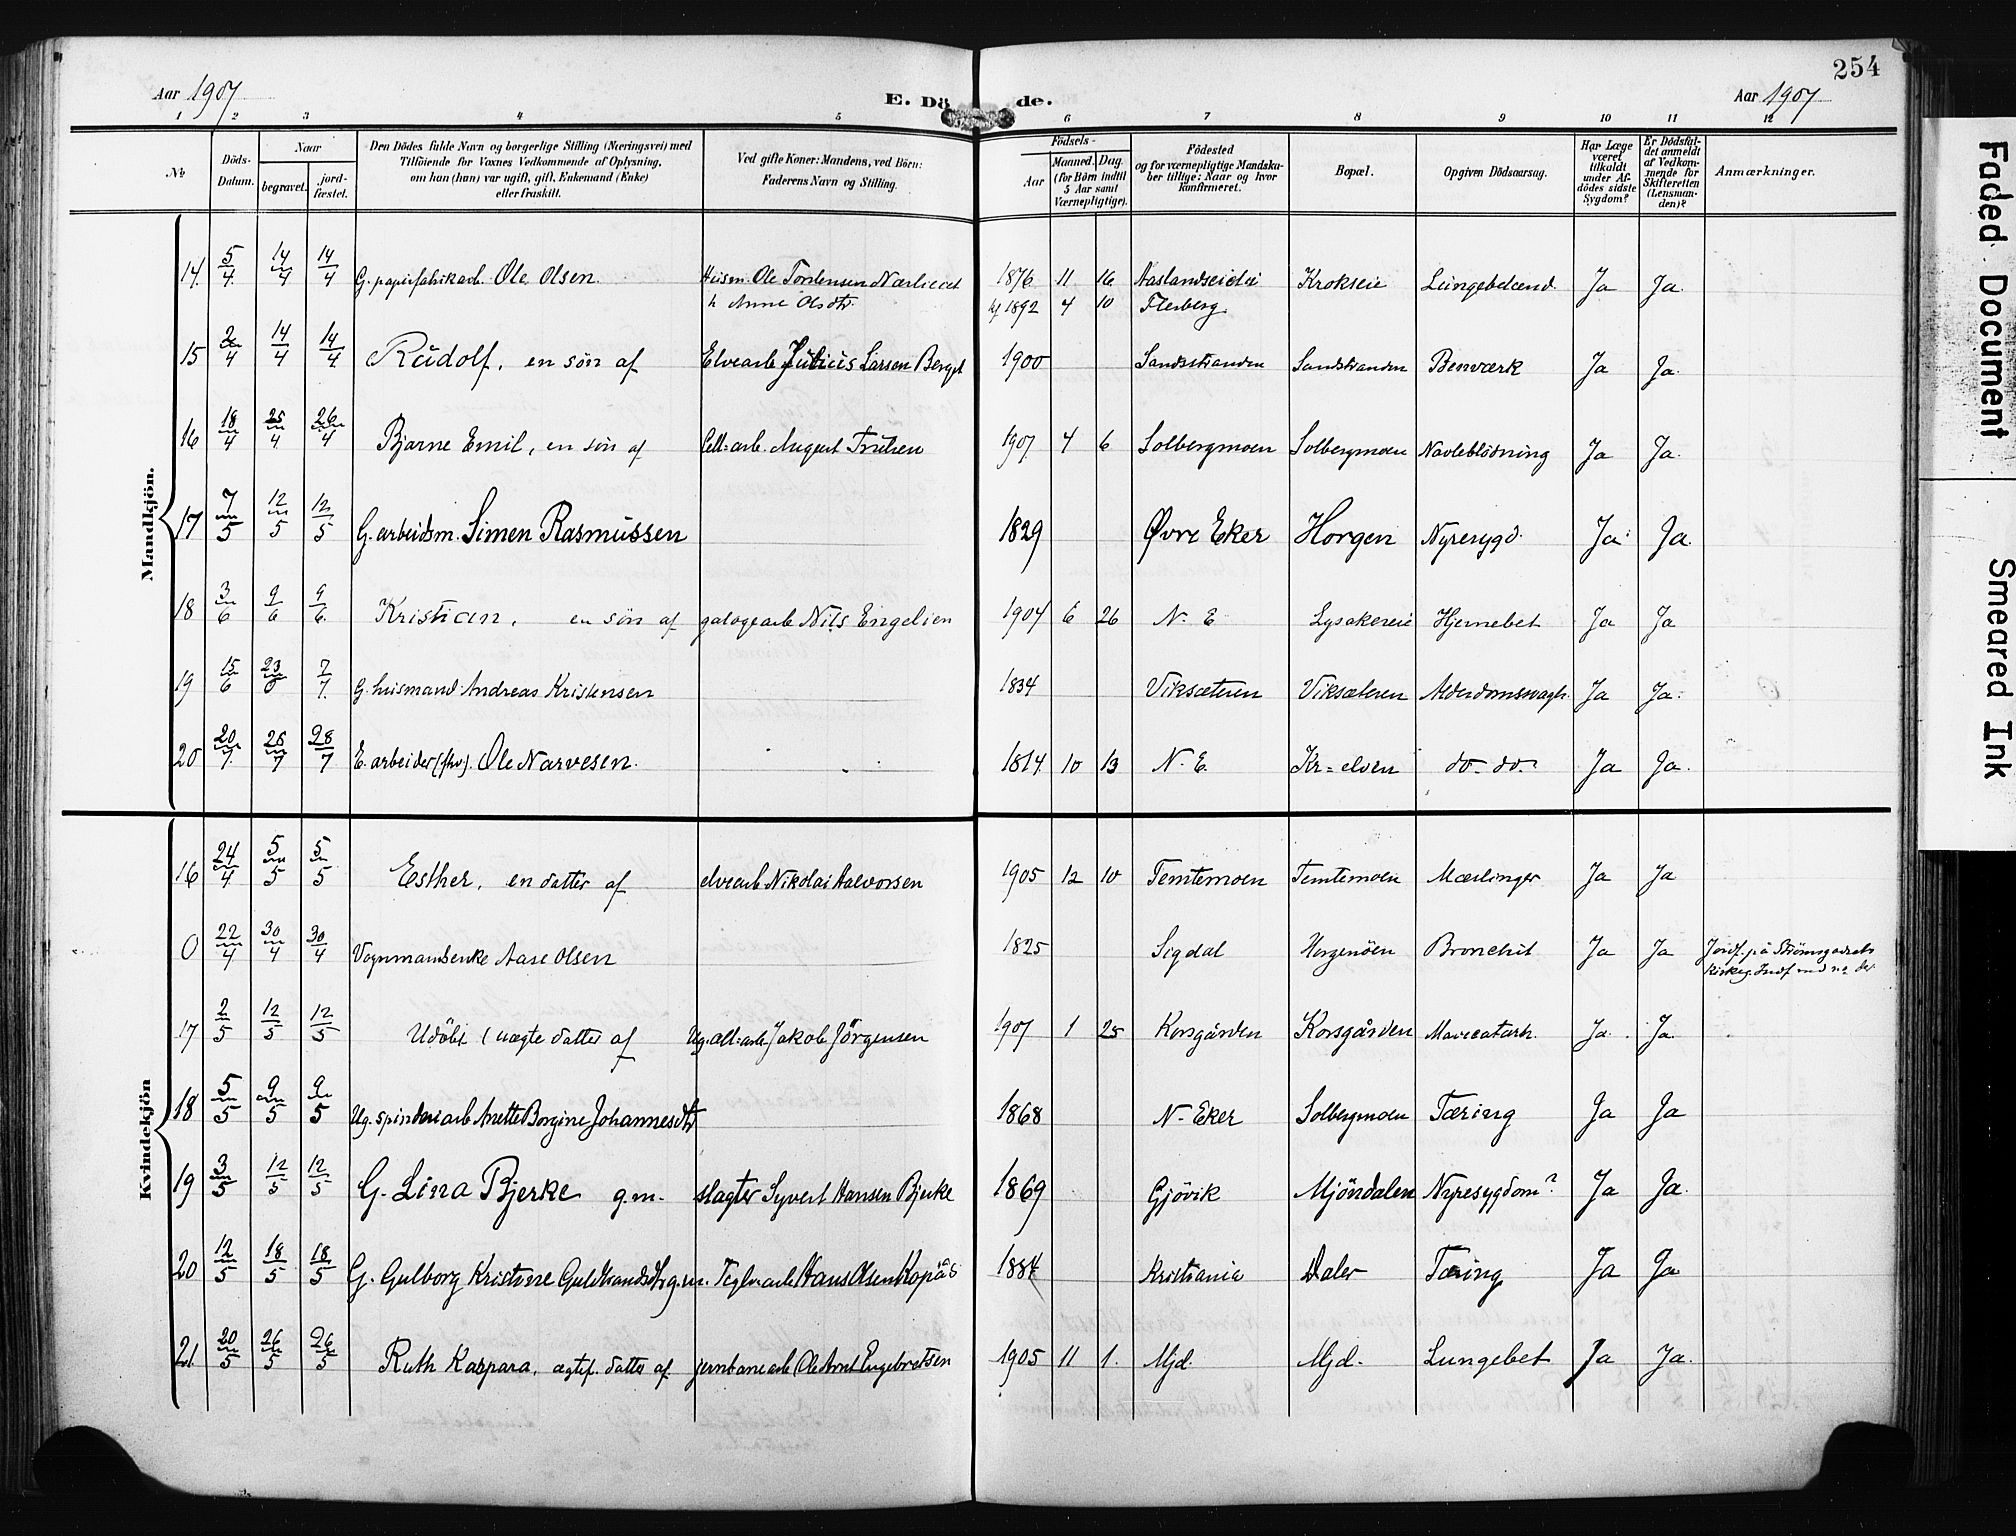 254
Aar 1907
E. Dö de.
Aar 1907
1 2 3 4 5 6 7 8 9 10 11 12
No
Döds-Datum.
Naar
begravet.
jord-fæstet.
Den Dödes fulde Navn og borgerlige Stilling (Næringsvei) med
Tilföiende for Voxnes Vedkommende af Oplysning,
om han (hun) var ugift, gift, Enkemand (Enke)
eller fraskilt.
Ved gifte Koner: Mandens, ved Börn:
Faderens Navn og Stilling.
Födsels-
Aar
Maaned. Dag.
(for Börn indtil
5 Aar samt
Værnepligtige).
Födested
og for værnepligtige Mandska-
ber tillige: Naar og hvor
konfirmeret.
Bopæl.
Opgiven Dödsaarsag.
Har Læge
været
tilkaldt
under Af-
dödes sidste
Sygdom?
Er Dödsfal-
det anmeldt
af Vedkom-
mende for
Skifteretten
(Lensman-
den)?
Anmærkninger.
Mandkjön.
14. 5/4. 14/4 14/4 G. papirfabrikarb. Ole Olsen. Husm. Ole Torstensen 1876 11 16 Krokseie Ja Ja.
h Anne Olsdtr kf 1892 4 10 Flesberg
15 14/4 14/4 Rudolf, en sön af Elvearb Julius Larsen 1900 Sandstranden Sandstranden Benværk Ja Ja.
16 18/4 25/4 26/4 Bjarne Emil, en sön af Cell=arb. August Trulsen 1907 4 6 Solbergmoen Solbergmoen Navleblödning Ja Ja.
17 7/5 12/5 12/5 G. arbeidsm. Simen Rasmussen 1829 Øvre Eker Horgen Nyresygd. Ja Ja.
18 3/6 9/6 9/6. Kristian, en sön af Nils Engelien 1904 6 26 N. E Lysakereie Hjernebet Ja Ja
19 15/6 7/7. G. husmand Andreas Kristensen 1834 Viksæteren Viksæteren Alderdomssvagh. Ja Ja.
20 20/7. 28/7 28/7 E. arbeider (fhv). Ole Narvesen. 1814 10 13 N. E. Kr=elven do. do. Ja Ja.
Kvindekjön
16 24/4 5/5 5/5 Esther, en datter af elvearb Nikolai Halvorsen 1905 12 10 Temtemoen Temtemoen Mæslinger Ja Ja
0 22/4 30/4 30/4 Vognmandsenke Aase Olsen 1825 Sigdal Horgenöen Bronchit Ja Ja Jordf. på Strömsgodsets
17 2/5 12/5 12/5 Udöbt (uægte datter af Ug. cell=arb. Jakob Jörgensen 1907 1 25 Korsgården Korsgården Mavecatarh. Ja. Ja
18 5/5 9/5 9/5 Ug. spinderiarb Anette Borgine Johannesdtr 1868 N. Eker Solbergmoen Tæring Ja Ja
19 3/5 12/5 12/5 G. Lina Bjerke g.m. slagter Syvert Hansen Bjerke 1869 Gjövik Mjöndalen Nyresygdom? Ja Ja.
20 12/5 18/5 18/5 G. Gulborg Kristine Guldbrandsdtr g.m. Teglv.arb Hans Olsen Kopås 1884 Kristiania Daler Tæring Ja Ja
21. 20/5 26/5 26/5 Ruth Kaspara, ægtef. datter af jernbanearb Ole Arnt Engebretsen 1905 11 1. Mjd. Mjd. Lungebet Ja Ja.
Faded Document
Smeared Ink